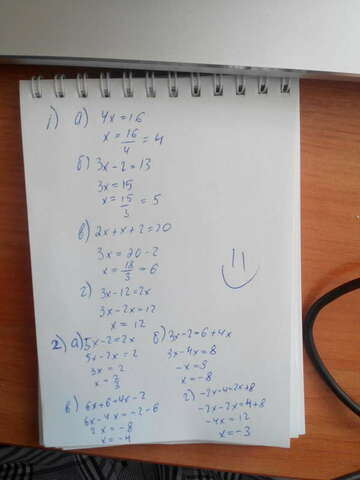 1) а) 4x=16
x=16/4=4
б) 3x-2=13
3x=15
x=15/3=5
в) 2x+x+2=20
3x=20-2
x=18/3=6
г) 3x-12=2x
3x-2x=12
x=12
2) а) 5x-2=2x
5x-2x=2
3x=2
x=2/3
б) 3x-2=6+4x
3x-4x=8
-x=8
x=-8
в) 6x+6=4x-2
6x-4x=-2-6
2x=-8
x=-4
г) -2x-4=2x+8
-2x-2x=4+8
-4x=12
x=-3